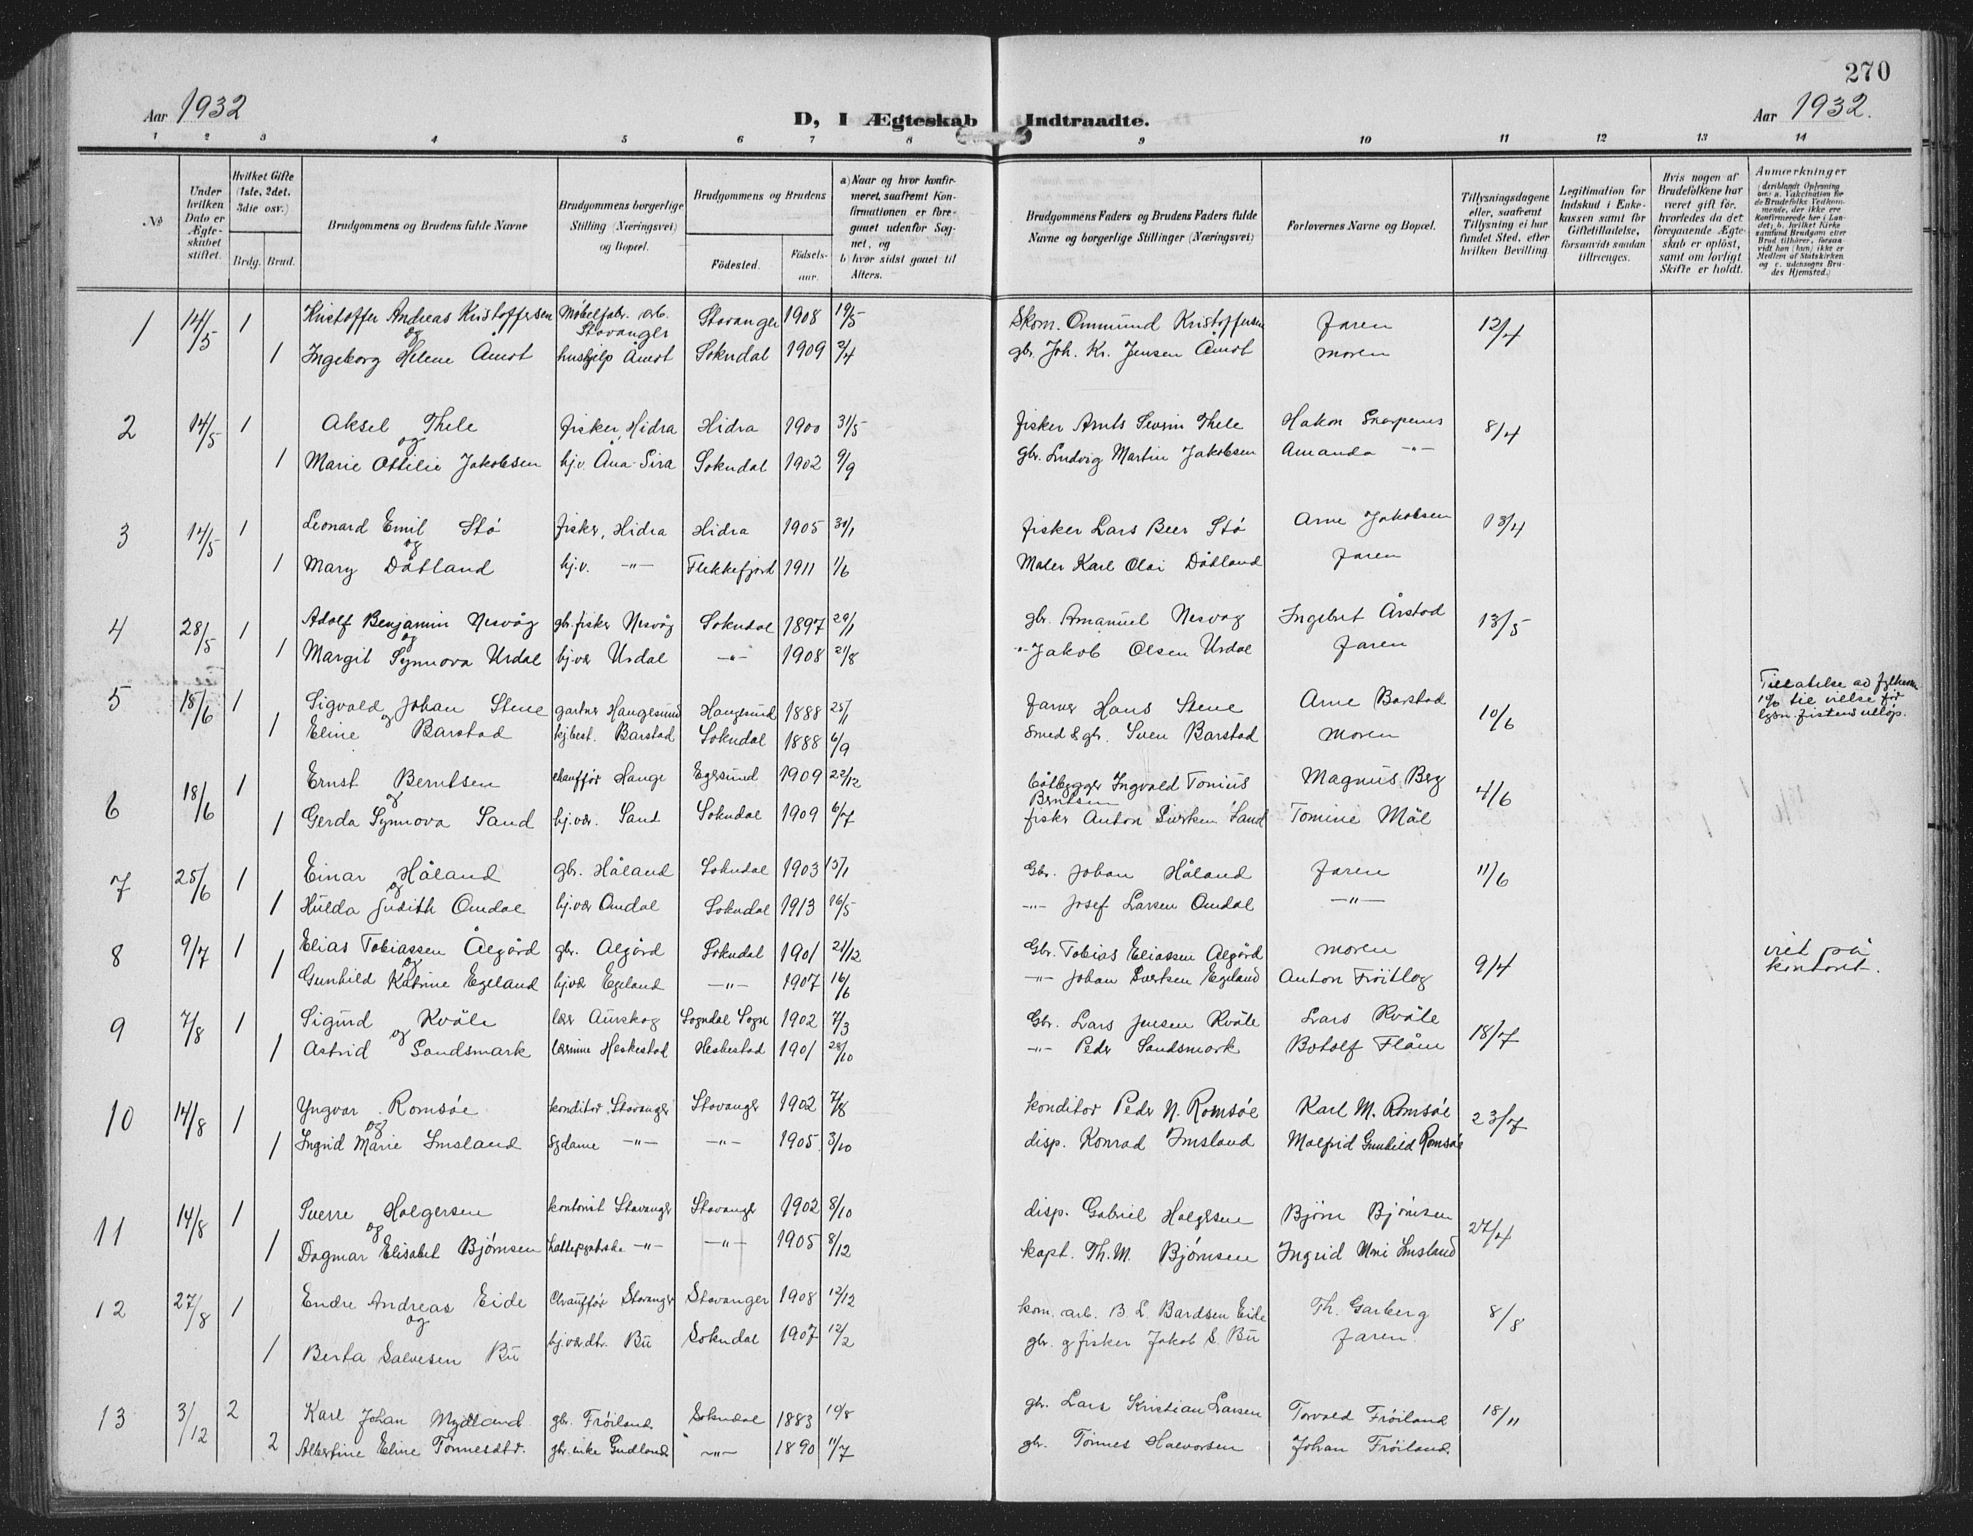 270
Aar 1932
D, I Ægteskab Indtraadte.
Aar 1932.
1 2 3 4 5 6 7 8 9 10 11 12 13 14
№
Under hvilken Dato er Ægteskabet stiftet.
Hvilket Gifte (1ste, 2det, 3die osv.)
Brdg. Brud.
Brudgommens og Brudens fulde Navne
Brudgommens borgerlige Stilling (Næringsvei) og Bopæl.
Brudgommens og Brudens
Fødested. Fødselsaar.
a) Naar og hvor konfirmeret, saafremt Konfirmationen er foregaaet udenfor Sognet, og
b) hvor sidst gaaet til Alters.
Brudgommens Faders og Brudens Faders fulde Navne og borgerlige Stillinger (Næringsvei)
Forlovernes Navne og Bopæl.
Tillysningsdagene eller, saafremt Tillysning ei har fundet Sted, efter hvilken Bevilling.
Legitimation for Indskud i Enkekassen samt for Giftetilladelse, forsaavidt saadan tiltrænges.
Hvis nogen af Brudefolkene har været gift før, hvorledes da det foregaaende Ægteskab er opløst, samt om lovligt Skifte er holdt.
Anmærkninger
(deriblandt Oplysning om: a. Vakcination for de Brudefolks Vedkommende, der ikke ere Konfirmerede her i Landet; b. hvilket Kirkesamfund Brudgom eller Brud tilhører, forsaavidt han (hun) ikke er Medlem af Statskirken og c. udensogns Brudes Hjemsted.)
1 14/5 1 Kristoffer Andreas Kristoffersen Møbelfabr. arb. Stavanger Stavanger 1908 19/5 Skom. Ommund Kristoffersen faren 12/4
og
1 Ingeborg Helene Åmot hushjelp Åmot Sokndal 1909 2/4 gbr. Joh. Kr. Jensen Åmot moren
2 14/5 1 Aksel Thele fisker, Hidra Hidra 1900 31/5 fisker Arnts Severin Thele Hakon 8/4
og
1 Marie Ottilie Jakobsen hj.v. Åna-Sira Sokndal 1902 9/9 gbr. Ludvig Martin Jakobsen Amanda -"-
3 14/5 1 Leonard Emil Stø fisker, Hidra Hidra 1905 fisker Lars Beer Stø Arne Jakobsen 13/4
og
1 Mary Dåtland hj.v. -"- Flekkefjord 1911 1/6 Maler Karl Olai Dåtland faren
4 28/5 1 Adolf Benjamin Nesvåg gbr. fisker Nesvåg Sokndal 1897 29/1 gbr. Amanuel Nesvag Ingebret Årstad 13/5
og
1 Margit Synnova Urdal hj.vær Urdal -"- 1908 21/8 -"- Jakob Olsen Urdal faren
5 18/6 1 Sigvald Johan Stene gartner Haugesund Haugesund 1888 25/1 farver Hans Stene Arne Barstad 10/6 Tillatelse av fylkesm. til vielse før lysn. fristens utløp.
og
1 Eline Barstad hj.best. Barstad Sokndal 1888 6/9 Smed & gbr. Sven Barstad moren
6 18/6 1 Ernst Berntsen chauffør Hauge Egersund 1909 22/12 båtbygger Ingvald Tonius Berntsen Magnus Berg 4/6
og
1 Gerda Synnova Sand hj.vær. Sand Sokndal 1909 6/7 fisker Anton Sivertsen Sand Tomine Mål
7 25/6 1 Einar Håland gbr. Håland Sokndal 1903 15/1 Gbr. Johan Håland faren 11/6
og
1 Hulda Judith Omdal hj.vær Omdal Sokndal 1913 16/5 -"- Josef Larsen Omdal -"-
8 9/7 1 Elias Tobiassen Ålgård gbr. Algård Sokndal 1901 21/12 Gbr. Tobias Eliassen Algård moren 9/4 viet på kontoret.
og
1 Gunhild Katrine Egeland hj.vær Egeland -"- 1907 16/6 -"- Johan Sivertsen Egeland Anton Frøitlog
9 7/8 1 Sigurd Kvåle lær Aurskog Sogndal Sogn 1902 7/3 Gbr. Lars Jensen Kvåle Lars Kvåle 18/7
og
1 Astrid Sandsmark lærerinne Heskestad Heskestad 1901 28/10 -"- Peder Sandsmark Botolf Flåm
10 14/8 1 Yngvar Romsøe konditor Stavanger Stavanger 1902 7/8 konditor Peder N. Romsøe Karl M. Romsøe 23/7
og
1 Ingrid Marie Imsland sydame -"- -"- 1905 3/10 disp. Konrad Imsland Malfrid Gunhild Romsøe
11 14/8 1 Sverre Holgersen kontorist Stavanger Stavanger 1902 8/10 disp. Gabriel Holgersen Bjørn Bjørnsen 27/4
og
1 Dagmar Elisabet Bjørnsen -"- -"- 1905 8/12 kapt. Th. M. Bjørnsen Ingrid Mari Imsland
12 27/8 1 Endre Andreas Eide Chauffør Stavanger Stavanger 1908 12/12 kom. arb. B L Bardsen Eide Th. Garberg 8/8
og
1 Berta Salvesen Bu hj.vær. dtr. Bu Sokndal 1907 12/2 gbr. g fisker Jakob S. Bu faren
13 3/12 2 Karl Johan Mydland gbr. Frøiland Sokndal 1883 19/8 gbr. Lars Kristian Larsen Torvald Frøiland 18/11
2 Albertine Eline Tønnesdtr. gbr. enke Gudland -"- 1890 11/7 gbr. Tønnes Halvorsen Johan Frøiland.